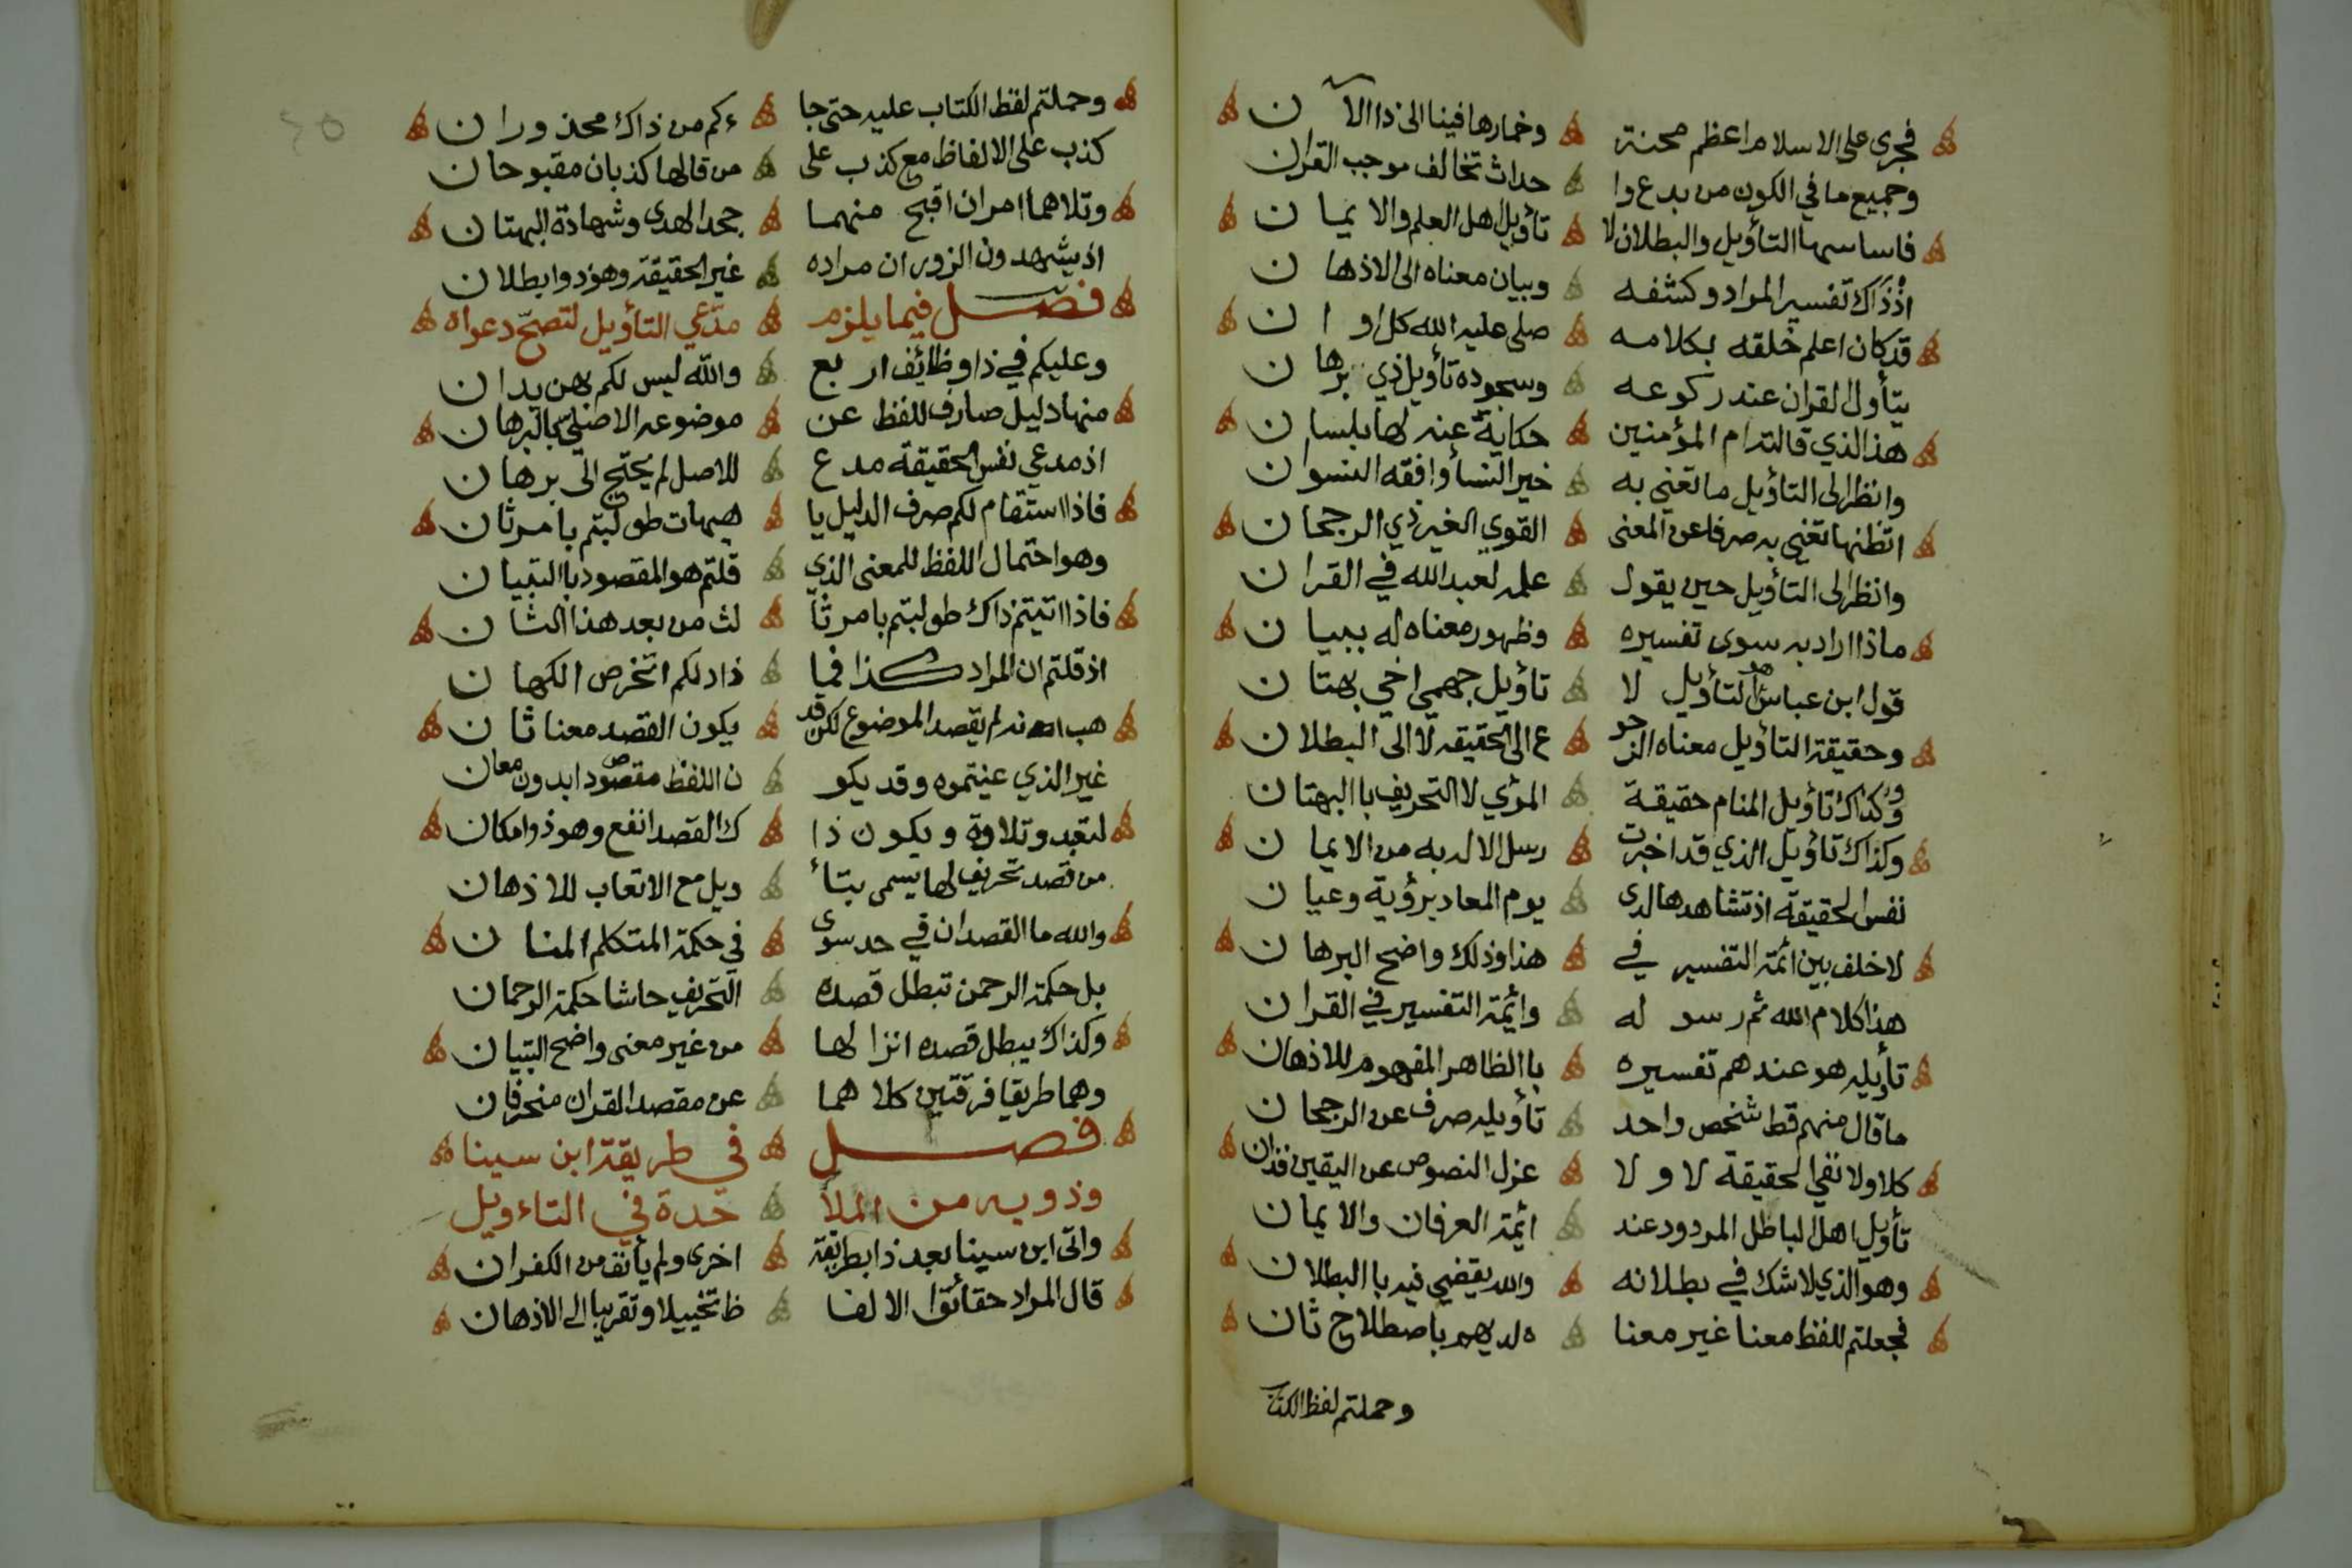 فجرى على الاسلام اعظم محنة وخمارها فينا الى ذا الآ ن
وجميع ما في الكون من بدع وا حداث تخالف موجب القران
فاساسها التأويل والبطلان لا تأويل اهل العلم والايما ن
اذ ذاك تفسير المراد وكشفه وبيان معناه الى الاذها ن
قد كان اعلم خلقه بكلامه صلى عليه الله كل اوا ن
يتأول القران عند ركوعه وسجوده تأويل ذي برها ن
هذا الذي قالته ام المؤمنين حكاية عنه لها بلسا ن
وانظر الى التأويل ما تغني به خير النسأ وافقه النسوان
اتظنها تغني به صرفا عن المعنى القوي الغير ذي الرجحا ن
وانظر الى التأويل حين يقول علمه لعبد الله في القرا ن
ماذا اراد به سوى تفسيره وظهور معناه له ببيا ن
قول ابن عباس هو التأويل لا تأويل جهمي اخي بهتا ن
وحقيقة التأويل معناه الرجو ع الى الحقيقه لا الى البطلا ن
وكذاك تأويل المنام حقيقة المرئي لا التحريف باالبهتا ن
وكذاك تأويل الذي قد اخبرت رسل الاله به من الايما ن
نفس الحقيقة اذ تشاهدها لدى يوم المعاد برؤية وعيا ن
لا خلف بين ائمة التفسير في هذا وذلك واضح البرها ن
هذا كلام الله ثم رسو له وائمة التفسير في القرا ن
تأويله هو عندهم تفسيره باالظاهر المفهوم للاذهان
ما قال منهم قط شخص واحد تأويله صرف عن الرجحا ن
كلا ولا نفي الحقيقة لا و لا عزل النصوص عن اليقين فذان
تأويل اهل الباطل المردود عند ائمة العرفان والايمان
وهو الذي لا شك في بطلانه والله يقضي فيه باالبطلان
فجعلتم للفظ معنا غير معنا ه لديهم باصطلاح ثان
وحملتم لفظ الكتاب
وحملتم لفظ الكتاب عليه حتى جا ءكم من ذاك محذورا ن
كذب على الالفاظ مع كذب على من قالها كذبان مقبوحان
وتلاهما امران اقبح منهما جحد الهدى وشهادة البهتان
اذ يشهدون الزور ان مراده غير الحقيقة وهو ذو ابطلان
فصل فيما يلزم مدّعي التأويل لتصحّ دعواه
وعليكم في ذا وظائف اربع والله ليس لكم بهن يدان
منها دليل صارف للفظ عن موضوعه الاصلي باالبرهان
اذ مدعي نفس الحقيقة مدع للاصل لم يحتج الى برهان
فاذا استقام لكم صرف الدليل يا هيهات طولبتم بامر ثان
وهو احتمال اللفظ للمعنى الذي قلتم هو المقصود باالتبيان
فاذا اتيتم ذاك طولبتم بامر ثا لث من بعد هذا الثا ن
اذ قلتم ان المراد كذا فما ذا دلكم اتخرص الكها ن
هب انه لم يقصد الموضوع لكن قد يكون القصد معنا ثا ن
غير الذي عنيتموه وقد يكو ن اللفظ مقصودا بدون معان
لتعبد وتلاوة ويكون ذا ك القصد انفع وهو ذو امكان
من قصد تحريف لها يسمى بتأ ويل مع الاتعاب للاذهان
والله ما القصدان في حد سوى في حكمة المتكلم المنا ن
بل حكمة الرحمن تبطل قصده التحريف حاشا حكمة الرحمان
وكذاك يبطل قصده انزالها من غير معنى واضح التبيان
وهما طريقا فرقتين كلاهما عن مقصد القران منحرفان
فصل في طريقة ابن سيناه
وذويه من الملأ حدة في التاءويل
واتى ابن سينا بعد ذا بطريقة اخرى ولم يأنف من الكفران
قال المراد حقائق الالفا ظ تخييلا وتقريبا الى الاذهان